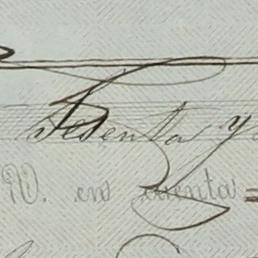 Sesenta y
en cuenta